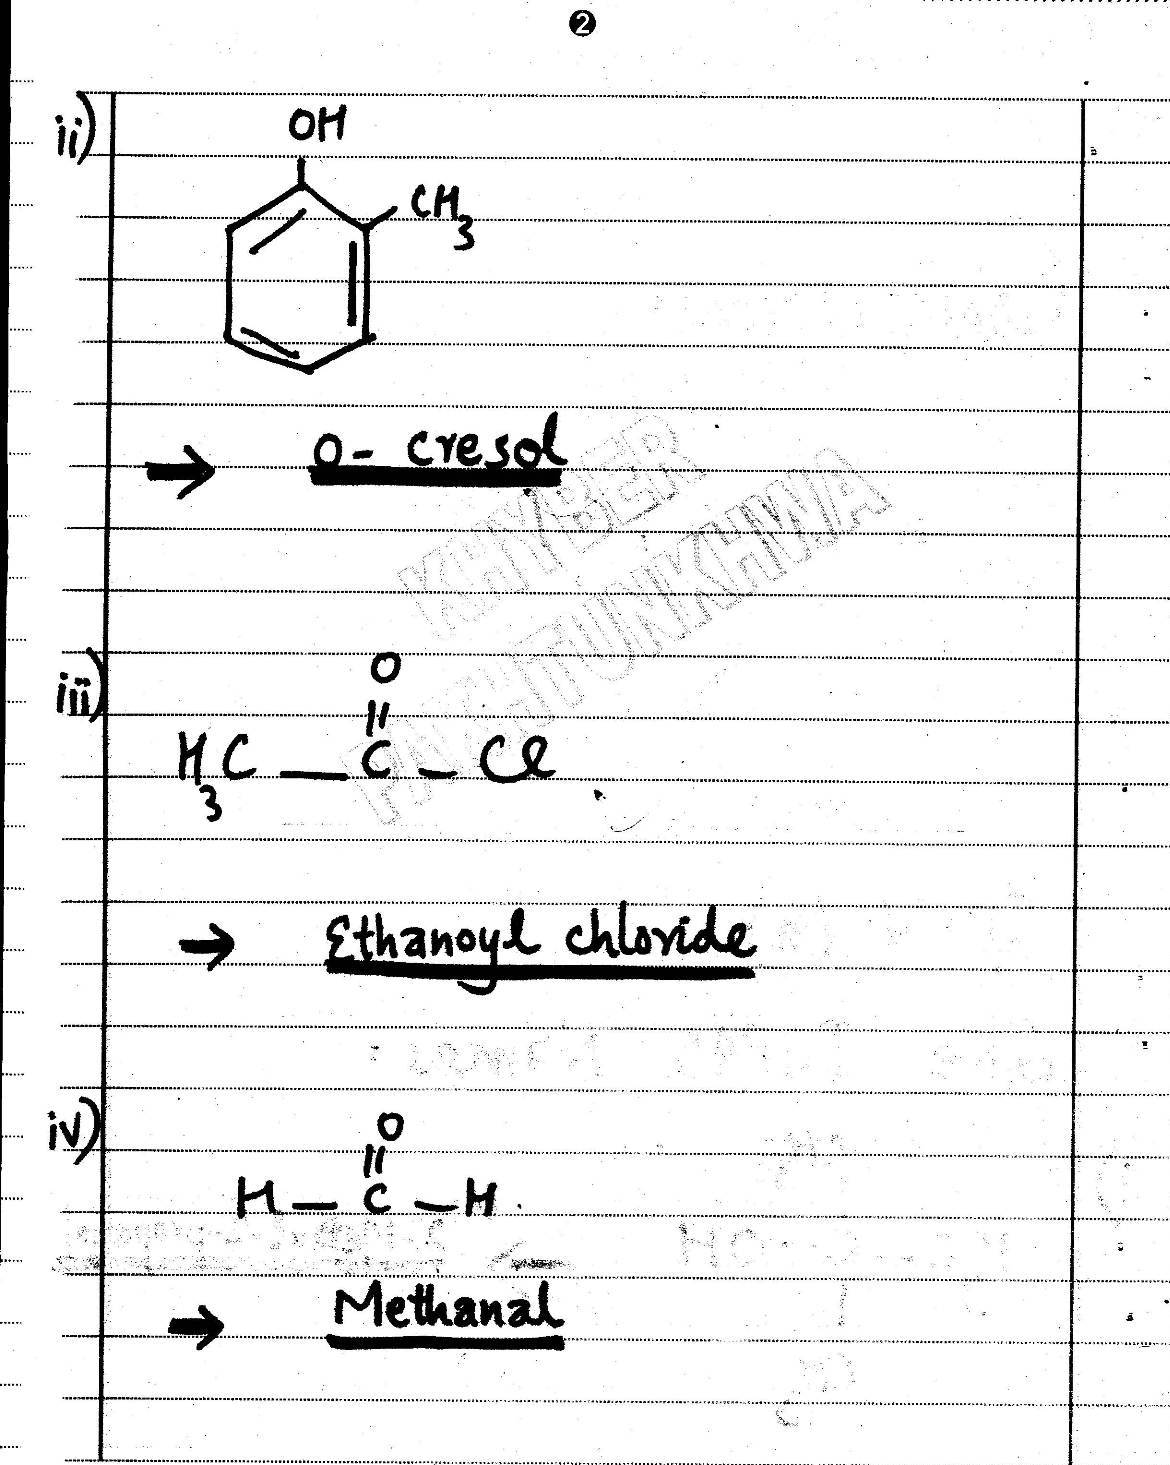 2
ii)
OH
CH3
O- cresol
KHYBER
PAKHTUNKHWA
iii)
O
||
H3C — C — Cl
Ethanoyl chloride
iv)
O
||
H — C — H .
Methanal